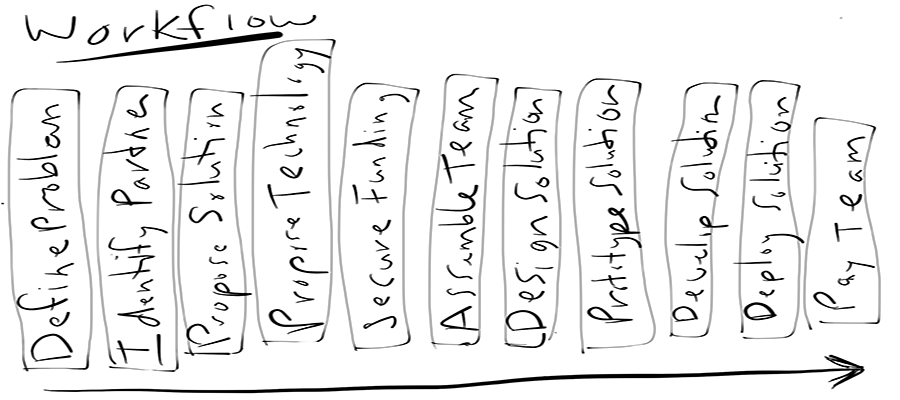 Workflow
Define Problem
Identify Partner
Propose Solution
Propose Technology
Secure Funding
Assemble Team
Design Solution
Prototype Solution
Develop Solution
Deploy Solution
Pay Team